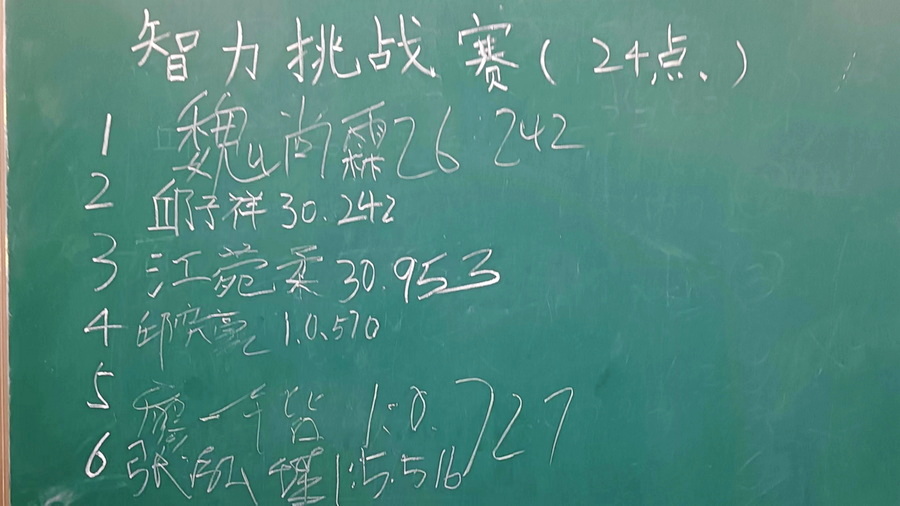 智力挑战赛(24点.)
1 魏尚霖 26.242
2 邱子祥 30.242
3 江菀柔 30.953
4 邱奕亮 1.0.570
5 廖一 1:0.727
6 张 1:5.516